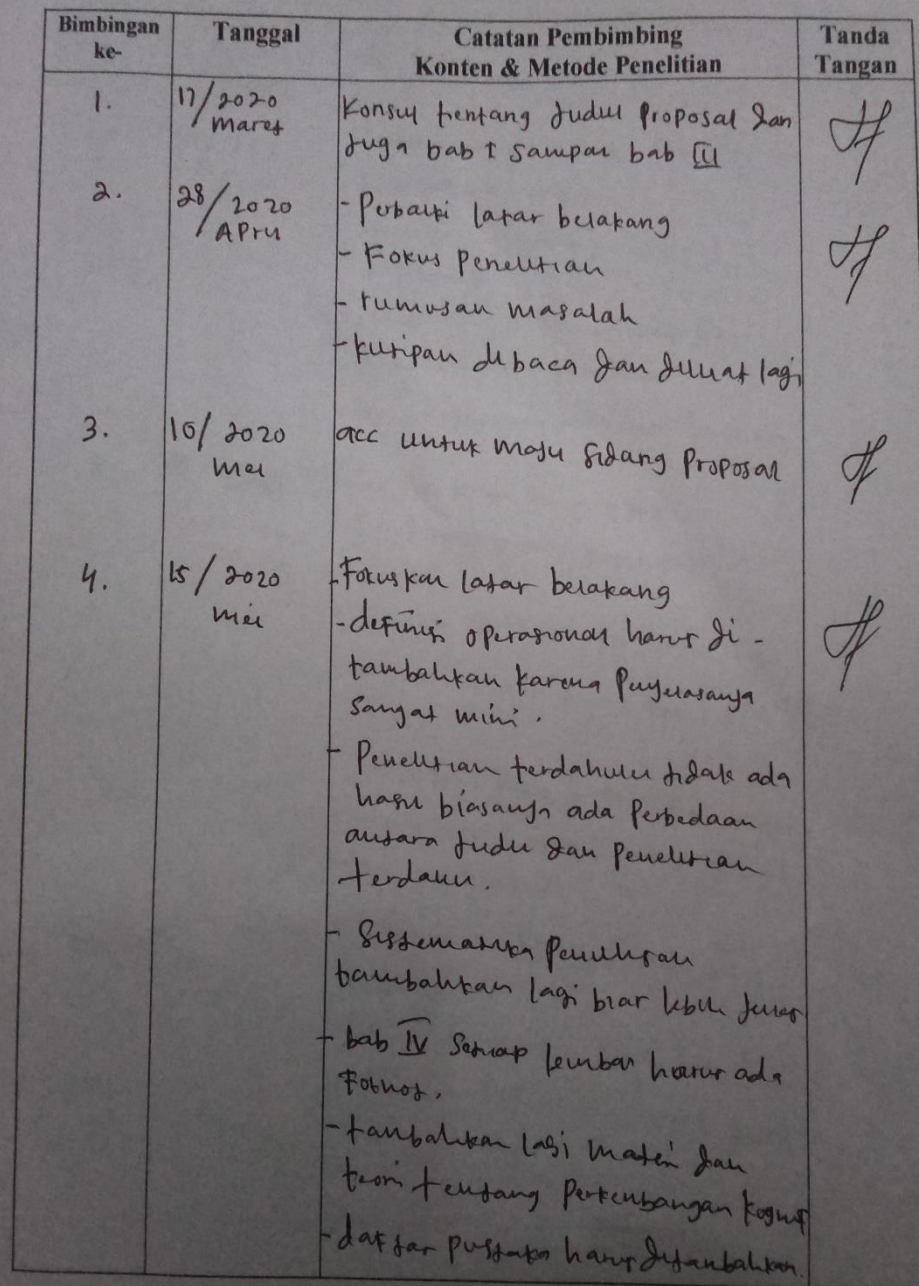 Bimbingan ke-
Tanggal
Catatan Pembimbing
Konten & Metode Penelitian
Tanda Tangan
1.
17/2020
Maret
Konsul tentang Judul Proposal dan
Juga bab I sampai bab III
2.
28/2020
April
- Perbaiki latar belakang
- Fokus Penelitian
- rumusan masalah
- kutipan dibaca dan dilihat lagi
3.
10/2020
Mei
acc untuk maju Sidang Proposal
4.
15/2020
Mei
- Fokuskan latar belakang
- definisi operasional harus di-
tambahkan karena Penjelasanya
Sangat mini.
- Penelitian terdahulu tidak ada
hasil biasanya ada Perbedaan
antara Judul dan Penelitian
terdahu.
- Sistematika Penulisan
tambahkan lagi biar lebih Jelas
- bab IV Setiap lembar harus ada
Fotnot.
- tambahkan lagi materi dan
teori tentang Perkembangan kognitif
- daftar pustaka harus ditambahkan.